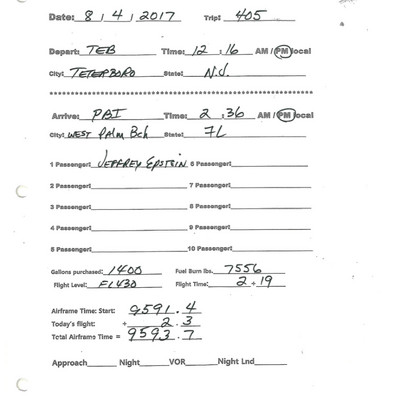 Date: 8/4/2017 Trip: 405
Depart: TEB Time: 12:16 AM/PM local
City: TETERBORO State: N.J.
Arrive: PBI Time: 2:36 AM/PM local
City: WEST PALM Bch State: FL
1 Passenger: JEFFREY EPSTEIN 6 Passenger:
2 Passenger: 7 Passenger:
3 Passenger: 8 Passenger:
4 Passenger: 9 Passenger:
5 Passenger: 10 Passenger:
Gallons purchased: 1400 Fuel Burn lbs. 7556
Flight Level: FL430 Flight Time: 2+19
Airframe Time: Start: 9591.4
Today's flight: + 2.3
Total Airframe Time = 9593.7
Approach Night VOR Night Lnd